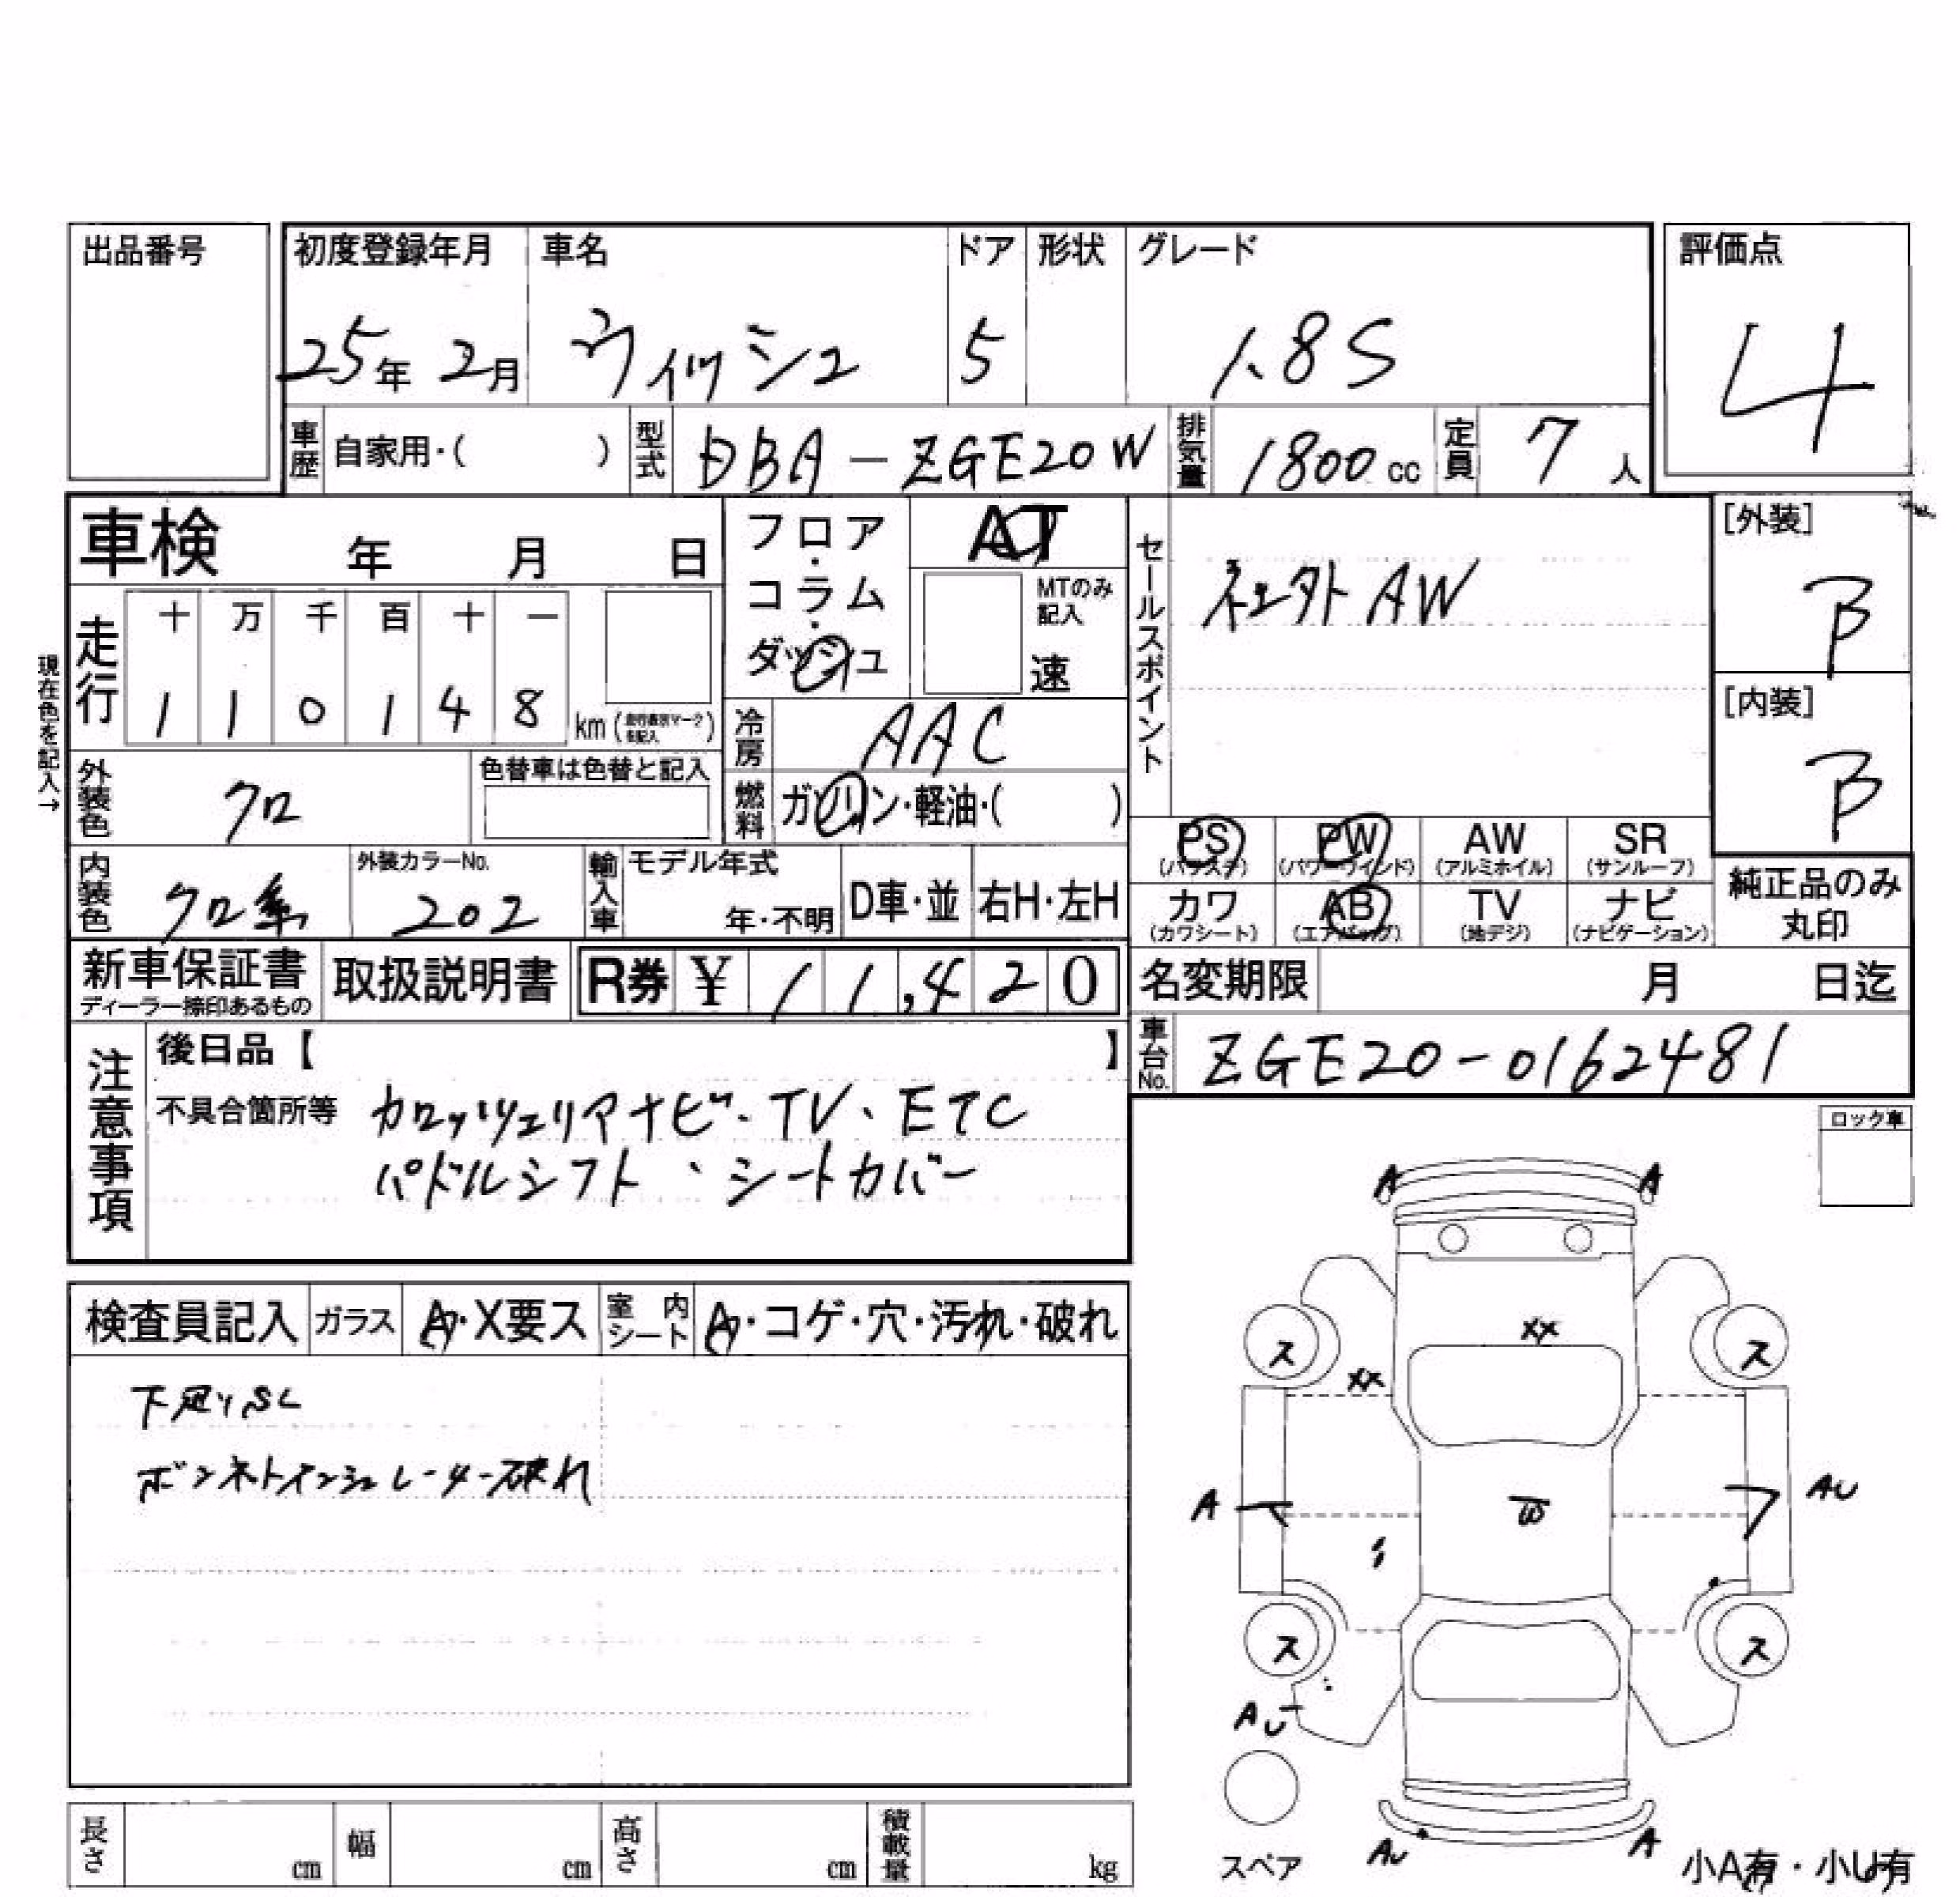 出品番号
初度登録年月 車名 ドア 形状 グレード 評価点
25年 2月 ウィッシュ 5 1.8S 4
車歴 自家用・( ) 型式 DBA-ZGE20W 排気量 1800cc 定員 7人
車検 年 月 日
フロア・コラム・ダッシュ
AT
MTのみ記入
速
セールスポイント
社外AW
[外装]
B
[内装]
B
現在色を記入→
走行 十 万 千 百 十 一
1 1 0 1 4 8 km
冷房 AAC
燃料 ガソリン・軽油・( )
外装色 クロ 色替車は色替と記入
内装色 クロ系 外装カラーNo. 202
輸入車 モデル年式 年・不明 D車・並 右H・左H
PS (パワステ) PW (パワーウインド) AW (アルミホイル) SR (サンルーフ)
カワ (カワシート) AB (エアバッグ) TV (地デジ) ナビ (ナビゲーション)
純正品のみ丸印
新車保証書 ディーラー捺印あるもの 取扱説明書 R券 ¥ 11,420
名変期限 月 日迄
車台No. ZGE20-0162481
注意事項
後日品【 】
不具合箇所等 カロッツェリアナビ・TV、ETC
パドルシフト、シートカバー
ロック車
検査員記入 ガラス A・X要ス 室内シート A・コゲ・穴・汚れ・破れ
下廻りSC
ボンネットインシュレーター破れ
A A
XX
XX
ス ス
A AU
ス ス
AU
スペア
AU A
小A有・小U有
長さ cm 幅 cm 高さ cm 積載量 kg